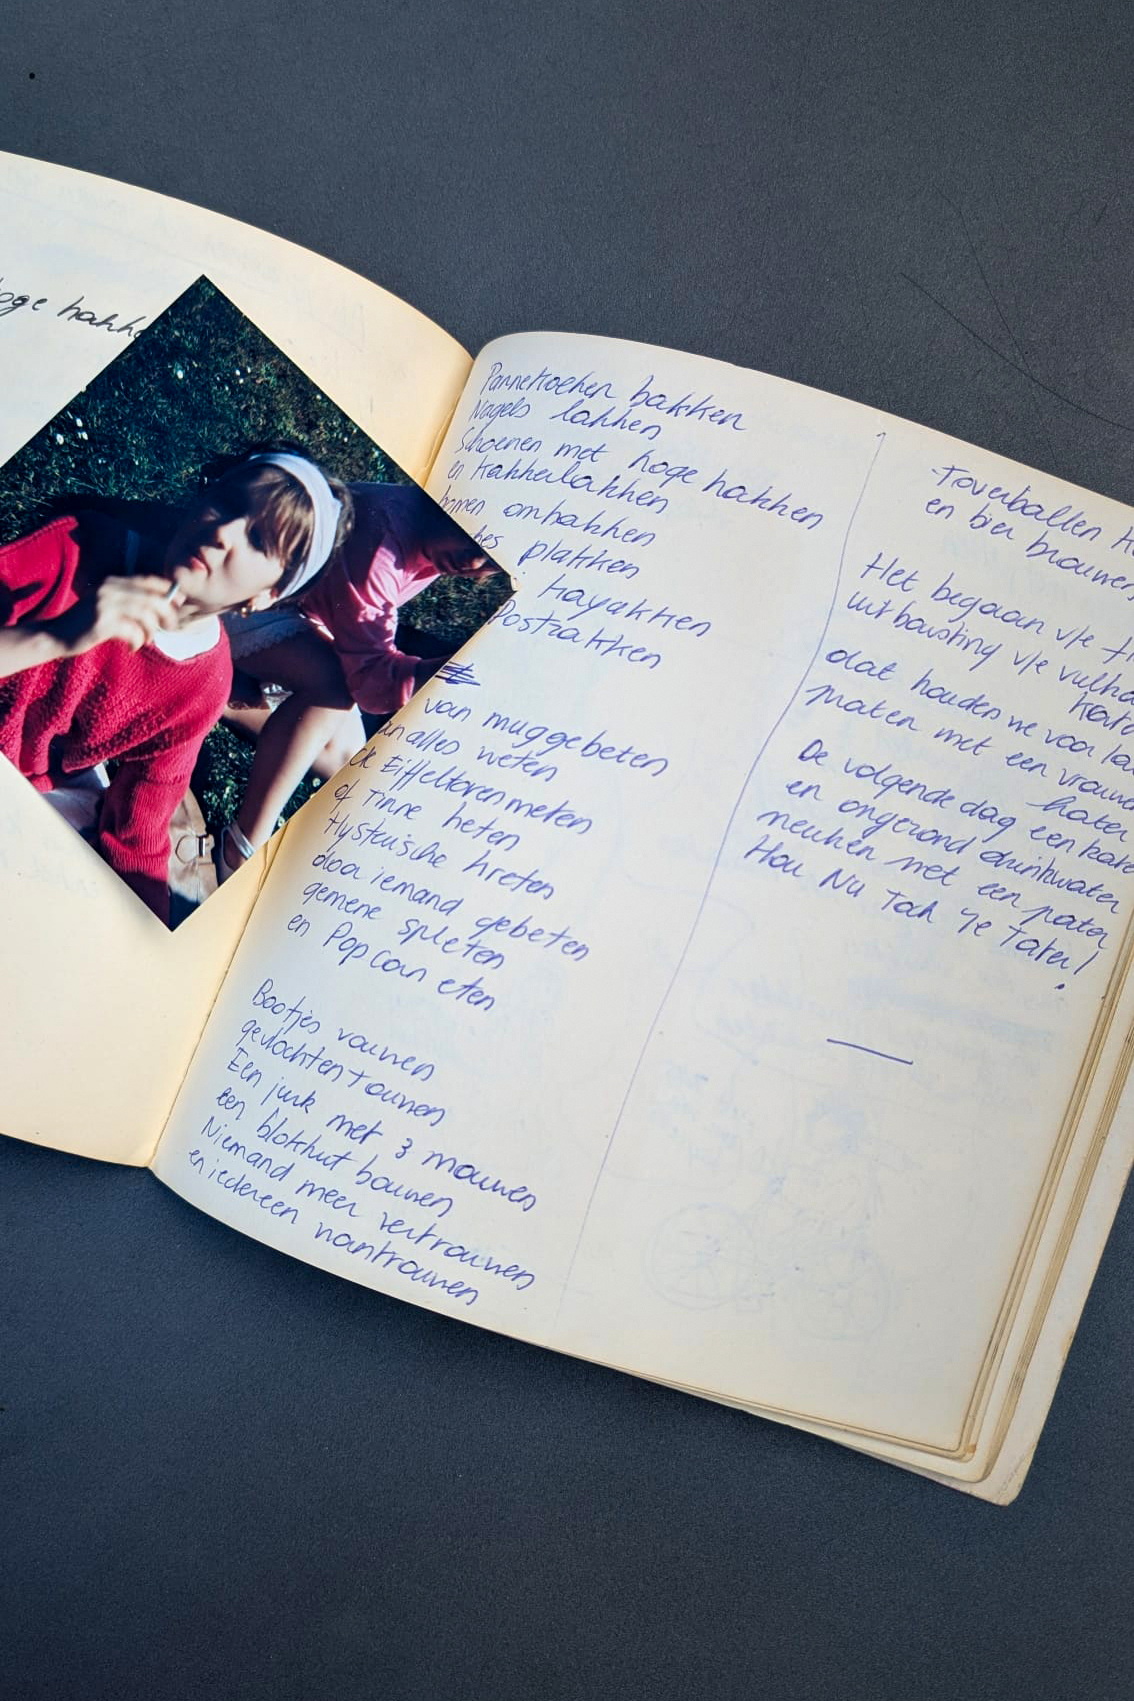 hoge hakke
Pannekoeken bakken
Nagels lakken
Schoenen met hoge hakken
en kakkerlakken
bomen omhakken
plakken
kayakken
Postzakken
van muggebeten
van alles weten
De Eiffeltoren meten
of Tinie heten
Hysterische kreten
door iemand gebeten
gemene spleten
en PopCorn eten
Bootjes vouwen
gevlochten touwen
Een jurk met 3 mouwen
een blokhut bouwen
Niemand meer vertrouwen
en iedereen wantrouwen
Toverballen
en bier brouwen
Het begaan v/e
uitbarsting v/e
dat houden we voor
praten met een
kater
De volgende dag een
en ongezond drinkwater
neuken met een pater
Hou Nu Toch Je Tater!